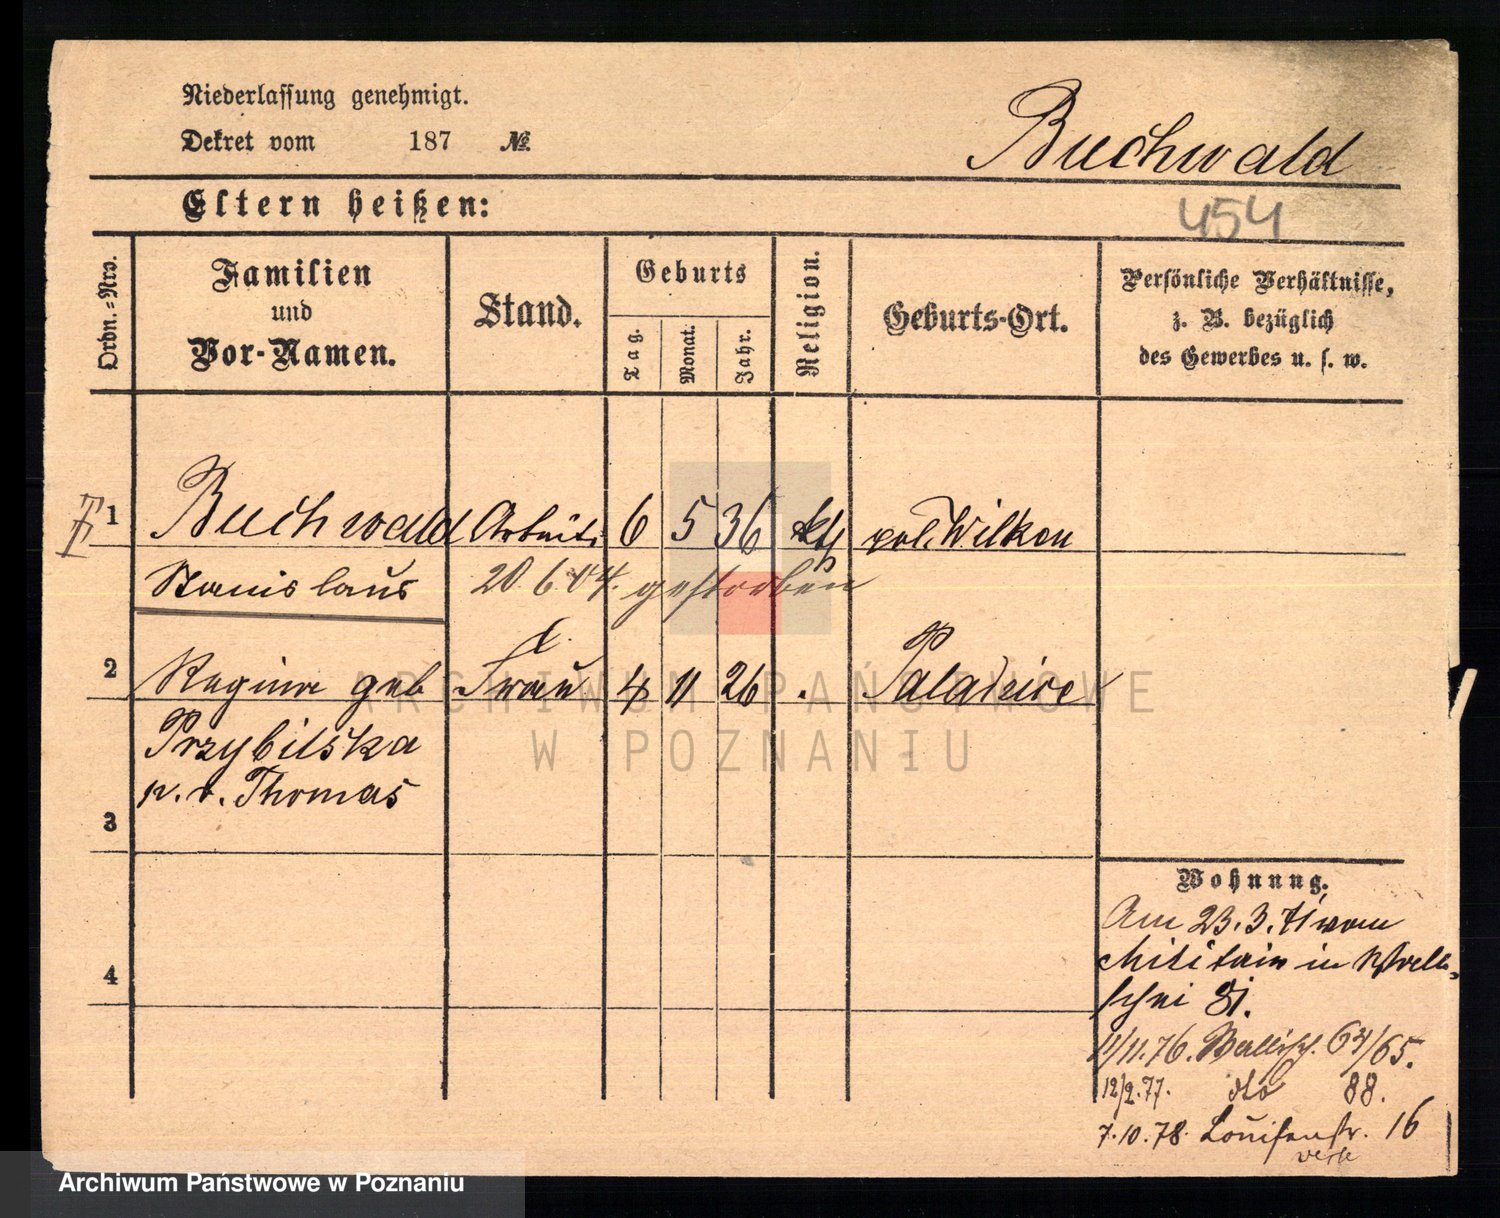 Niederlassung genehmigt.
Dekret vom 187 №.
Buchwald
Eltern heißen:
454
Ordn.-Nro.
Familien
und
Vor-Namen.
Stand.
Geburts
Tag.
Monat.
Jahr.
Religion.
Geburts-Ort.
Persönliche Verhältnisse,
z. B. bezüglich
des Gewerbes u. s. w.
1 Buchwald Arbeit. 6 5 36 kth pol. Wilken
Stanislaus 20.6.04. gestorben
2 Regina geb Frau 4 11 26 . Paladzice
Przybilska
n. v. Thomas
3
4
Wohnung.
Am 23.3.71 vom
Militair in Wall
schei 81.
11/11.76. Wallisch. 64/65.
12/2.77. dto 88.
7.10.78. Louisenstr. 16
ARCHIWUM PAŃSTWOWE
W POZNANIU
Archiwum Państwowe w Poznaniu